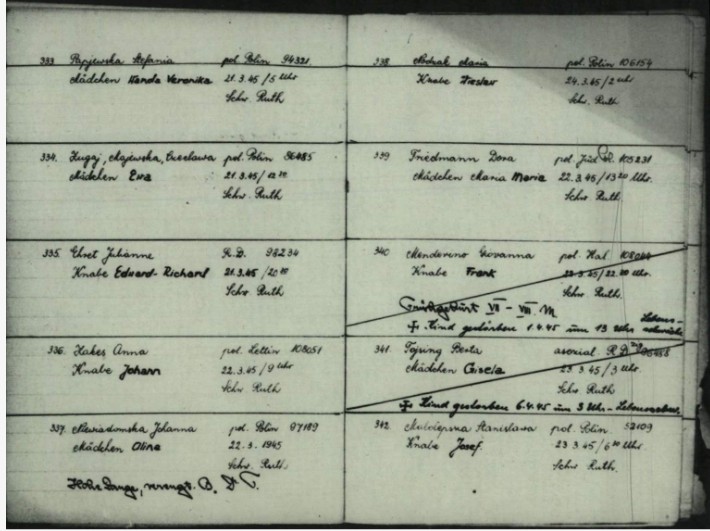 333 Papijewska Stefania pol. Polin 94321
Mädchen Wanda Veronika 21.3.45/5 Uhr
Schw. Ruth
334. Zugaj, Majewska, Czeslawa pol. Polin 96485
Mädchen Ewa 21.3.45/12 30
Schw. Ruth
335. Ehret Juhanne R.D. 98234
Knabe Edward-Richard 21.3.45/20
Schw. Ruth
336. Hakes Anna pol. Lettin 108051
Knabe Johann 22.3.45/9 Uhr
Schw. Ruth
337. Niewiadomska Johanna pol. Polin 97189
Mädchen Olina 22.3.1945
Schw. Ruth
Hohe Zange,
338. Maria pol. Polin 106154
Knabe 24.3.45/2 Uhr
Schw. Ruth
339 Friedmann Dora pol. Jüd. 105231
Mädchen Maria Maria 22.3.45/13 20 Uhr.
Schw. Ruth
340 Giovanna pol. Ital.
Knabe Frank 22.3.45/22 Uhr.
Schw. Ruth
Frühgeburt VII - VIII M
Kind gestorben 1.4.45 um 13 Uhr Lebensschwäche
341. Berta asozial R.D.
Mädchen Gisela 23.3.45/3 Uhr.
Schw. Ruth
Kind gestorben 6.4.45 um 3 Uhr - Lebensschw.
342. Stanislawa pol. Polin. 52109
Knabe Josef. 23.3.45/6 Uhr
Schw. Ruth.